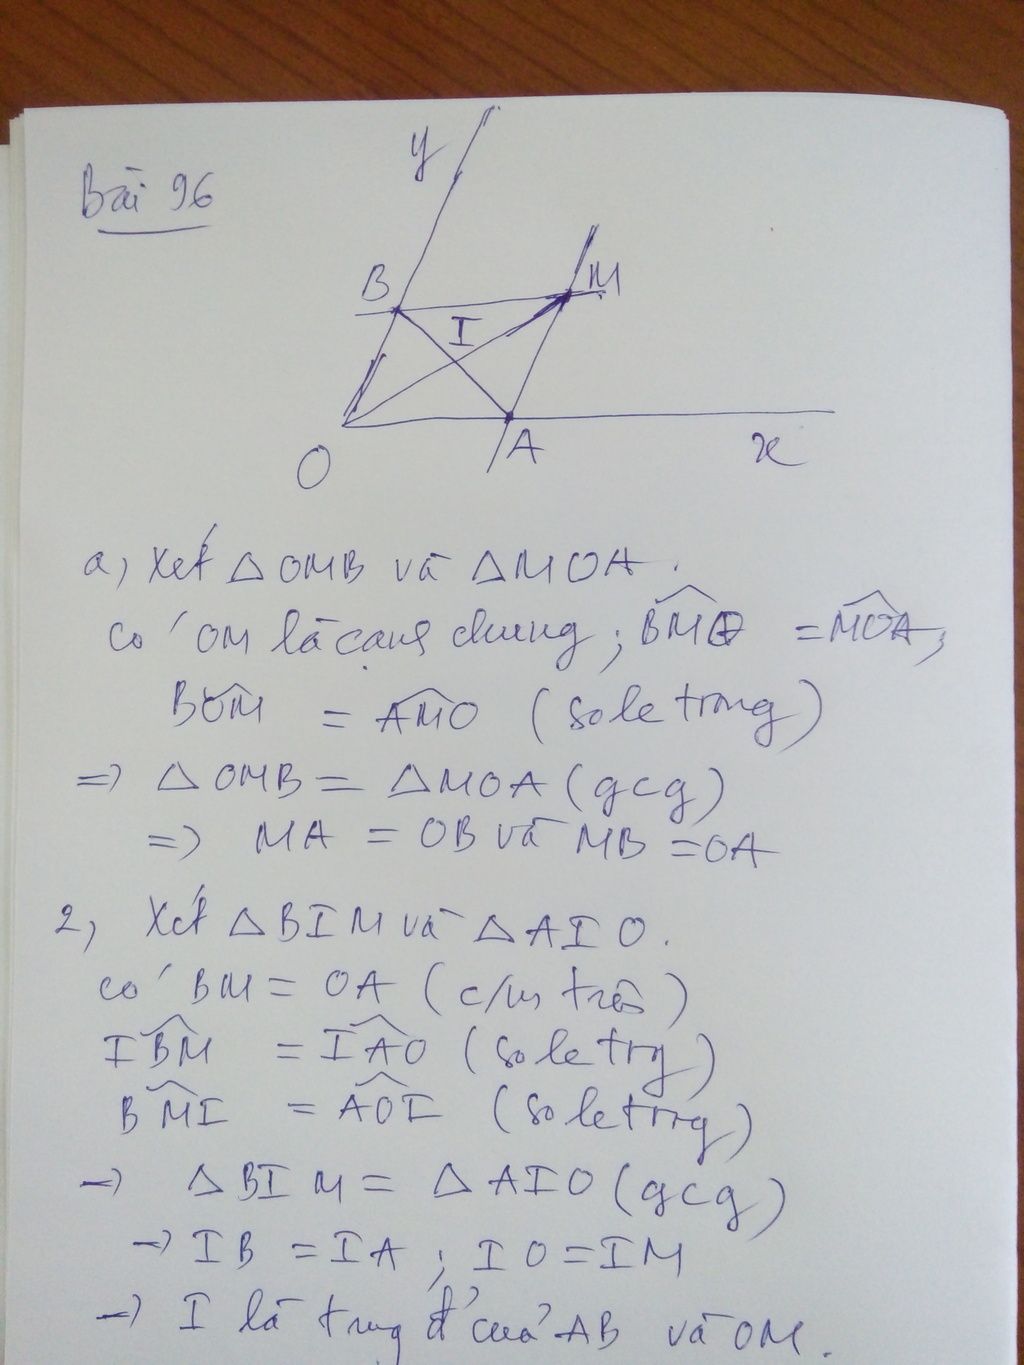 Bài 96
y
B
M
I
O
A
x
a, Xét △OMB và △MOA.
có OM là cạnh chung; BMO^ = MOA^;
BOM^ = AMO^ (so le trong)
=> △OMB = △MOA (gcg)
=> MA = OB và MB = OA
2, Xét △BIM và △AIO.
có BM = OA (c/m trên)
IBM^ = IAO^ (so le trg)
BMI^ = AOI^ (so le trg)
→ △BIM = △AIO (gcg)
→ IB = IA; IO = IM
→ I là trung đ' của AB và OM.